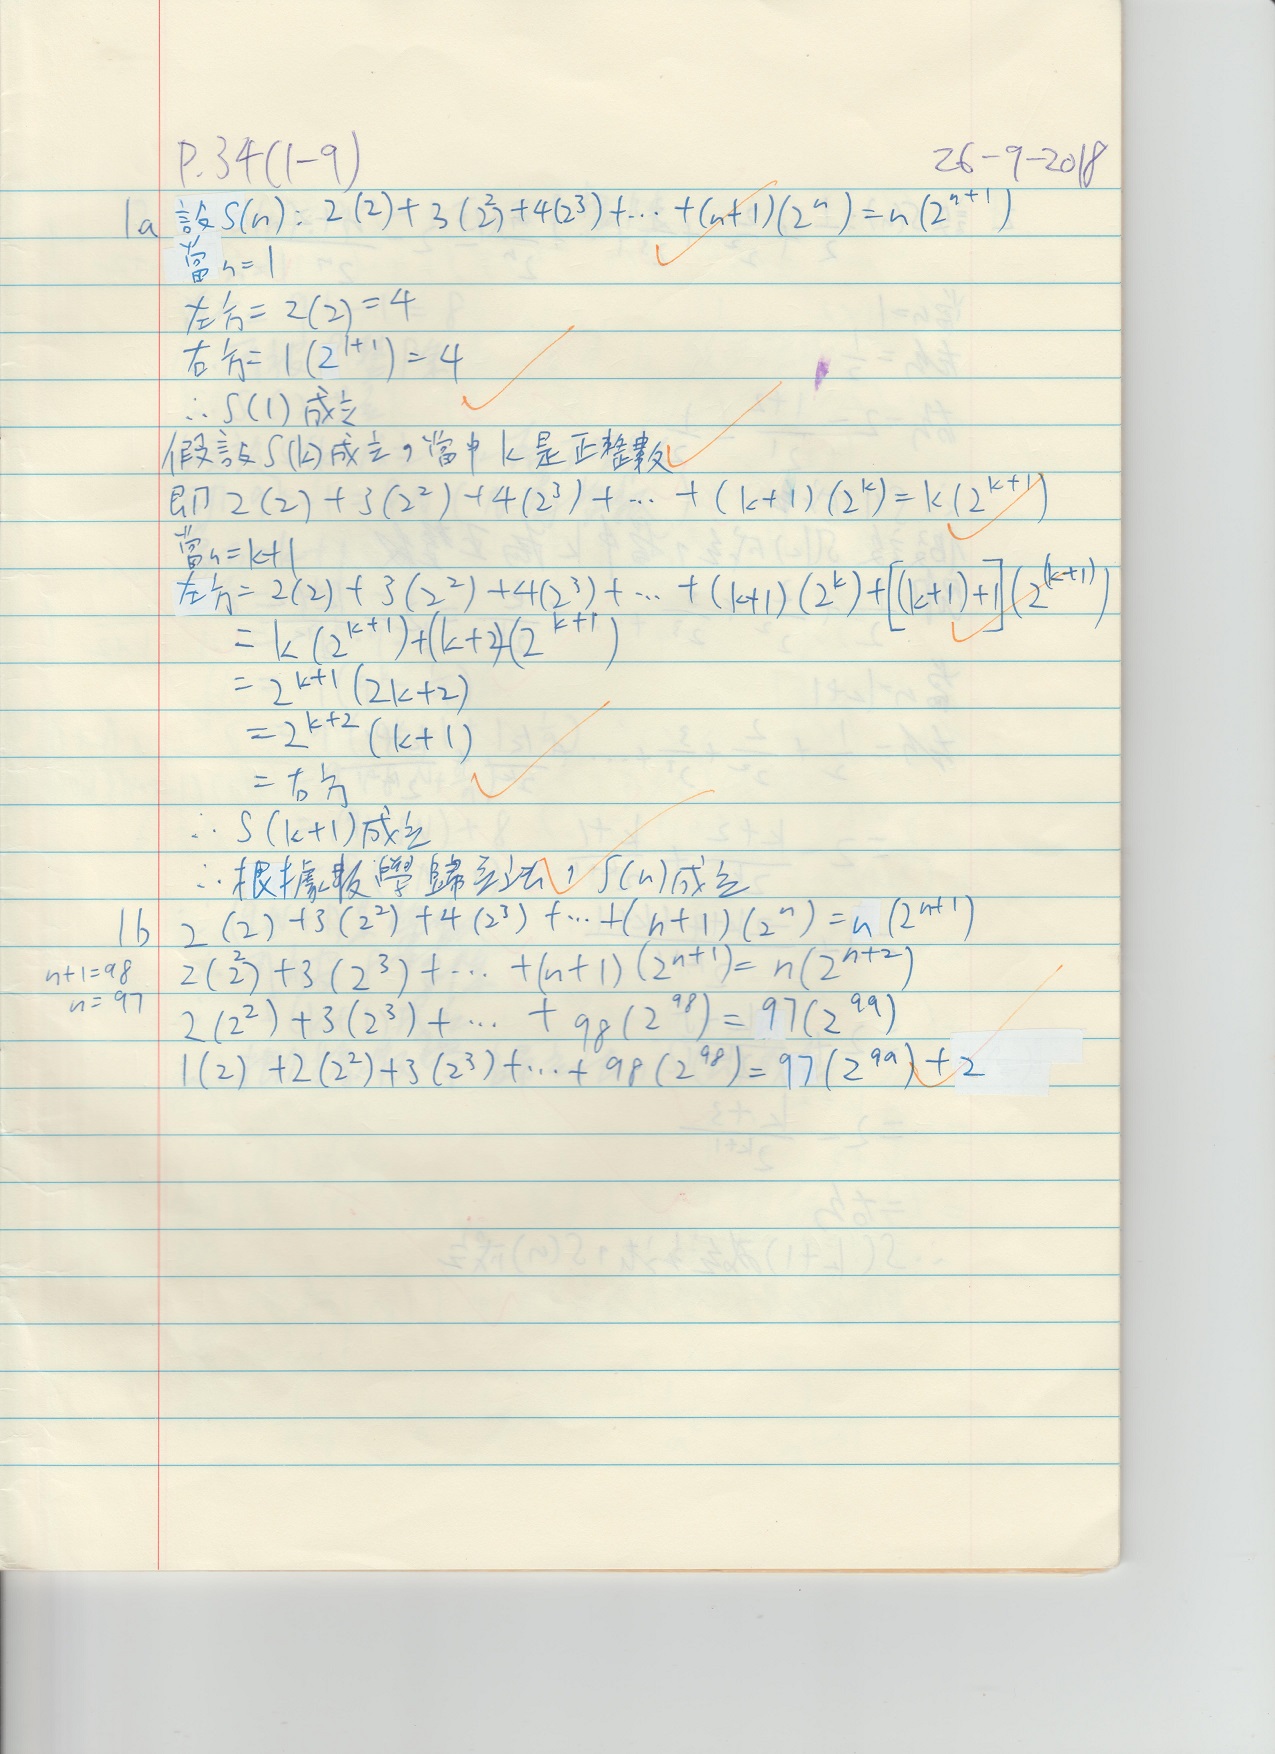 P.34(1-9) 26-9-2018
1a 設S(n): 2(2)+3(2²)+4(2³)+…+(n+1)(2ⁿ)=n(2ⁿ⁺¹)
當n=1
左方=2(2)=4
右方=1(2¹⁺¹)=4
∴S(1)成立
假設S(k)成立,當中k是正整數
即2(2)+3(2²)+4(2³)+…+(k+1)(2ᵏ)=k(2ᵏ⁺¹)
當n=k+1
左方=2(2)+3(2²)+4(2³)+…+(k+1)(2ᵏ)+[(k+1)+1](2⁽ᵏ⁺¹⁾)
=k(2ᵏ⁺¹)+(k+2)(2ᵏ⁺¹)
=2ᵏ⁺¹(2k+2)
=2ᵏ⁺²(k+1)
=右方
∴S(k+1)成立
∴根據數學歸納法,S(n)成立
1b 2(2)+3(2²)+4(2³)+…+(n+1)(2ⁿ)=n(2ⁿ⁺¹)
n+1=98 2(2²)+3(2³)+…+(n+1)(2ⁿ⁺¹)=n(2ⁿ⁺²)
n=97 2(2²)+3(2³)+…+98(2⁹⁸)=97(2⁹⁹)
1(2)+2(2²)+3(2³)+…+98(2⁹⁸)=97(2⁹⁹)+2